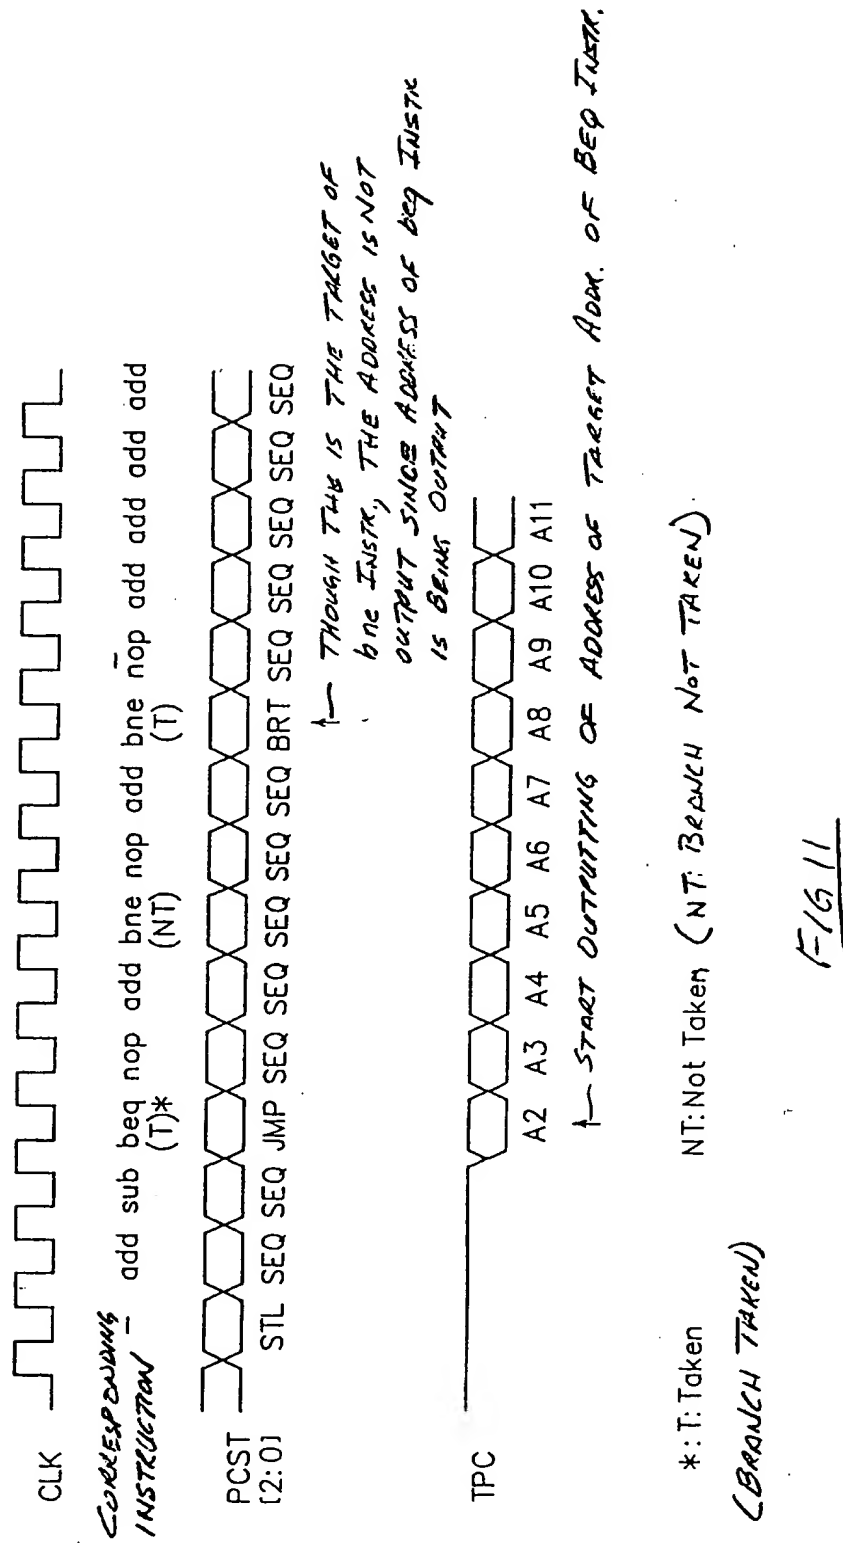 CLK
CORRESPONDING
INSTRUCTION — add sub beq nop add bne nop add bne nop add add add add
(T)* (NT) (T)
PCST
[2:0]
STL SEQ SEQ JMP SEQ SEQ SEQ SEQ SEQ BRT SEQ SEQ SEQ SEQ SEQ
THOUGH THIS IS THE TARGET OF
bne INSTR., THE ADDRESS IS NOT
OUTPUT SINCE ADDRESS OF beq INSTR
IS BEING OUTPUT
TPC
A2 A3 A4 A5 A6 A7 A8 A9 A10 A11
START OUTPUTTING OF ADDRESS OF TARGET ADDR. OF BEQ INSTR.
*: T: Taken NT: Not Taken (NT: BRANCH NOT TAKEN).
(BRANCH TAKEN)
FIG 11